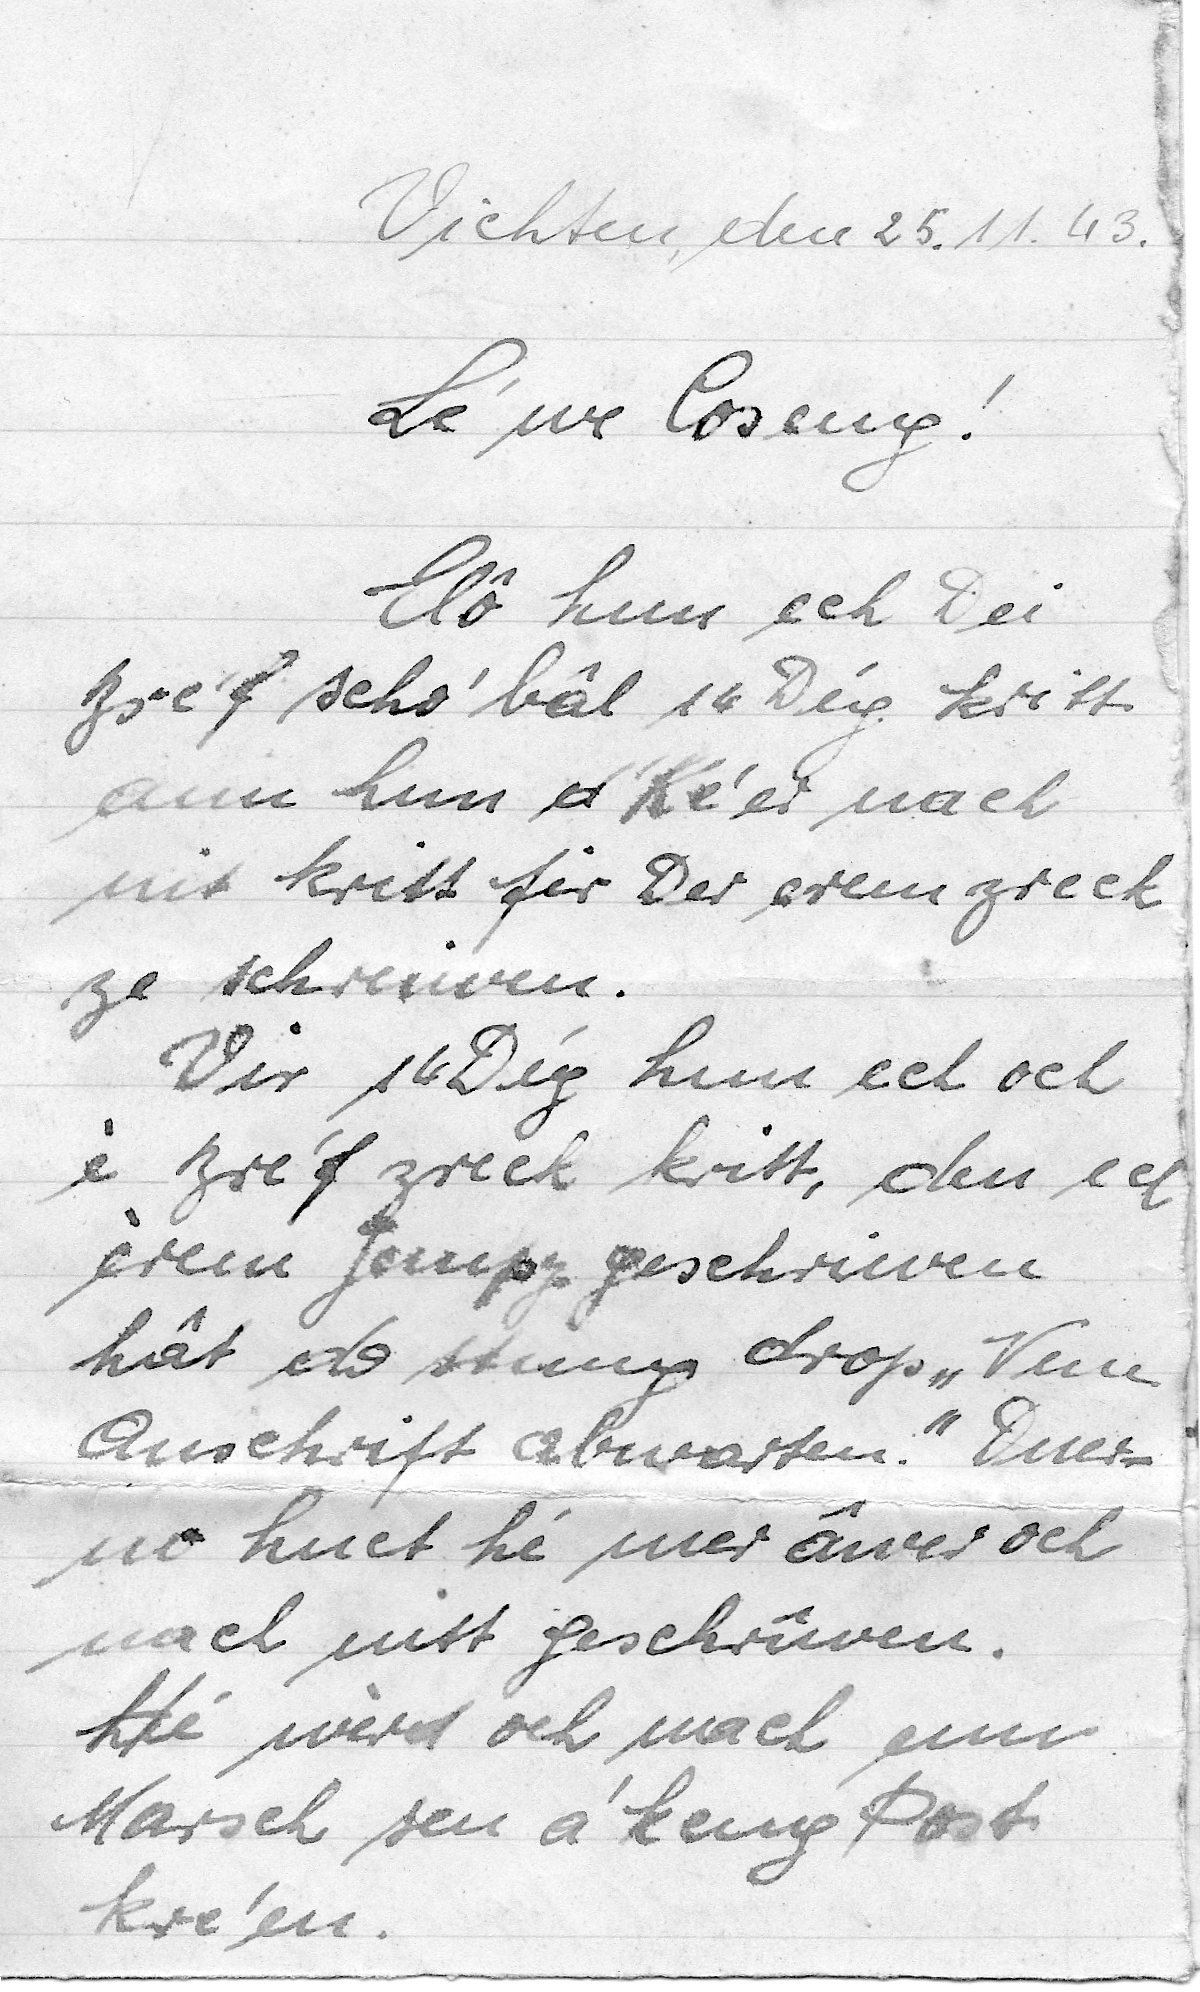 Vichten, den 25. 11. 43.
Lé'we Coseng!
Elô hun ech Dei
Bre'f scho' bâl 14 Dég kritt
ann hun d'Ké'er nach
nit kritt fir Der erem zreck
ze schreiwen.
Vir 14 Dég hun ech och
è Bre'f zreck kritt, den ech
èrem Jempy geschriwen
hât do stung drop „Neue
Anschrift abwarten." Duer-
no huet hé mer âwer och
nach nitt geschriwen.
Hé wèrd och nach um
Marsch sen a' keng Post
kre'en.